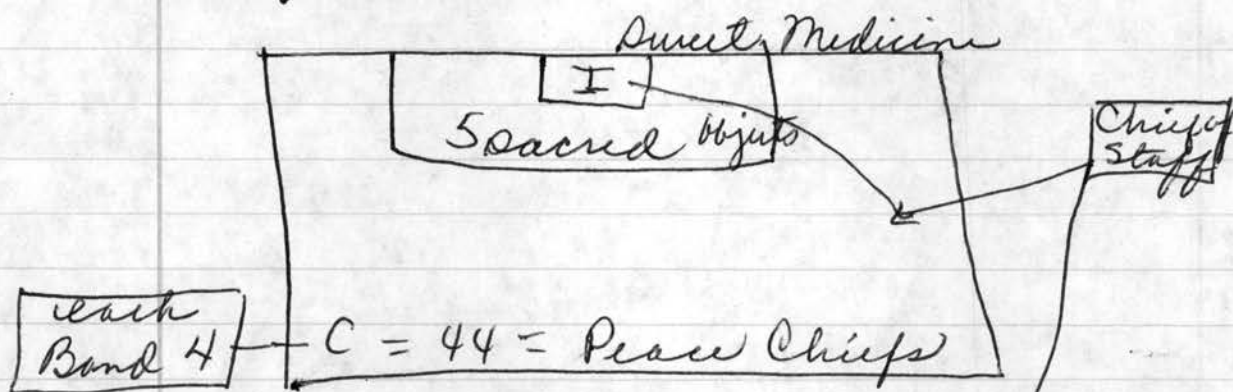 Sweet Medicine
I
5 sacred objects
Chief of
Staff
each
Band 4
C = 44 = Peace Chiefs